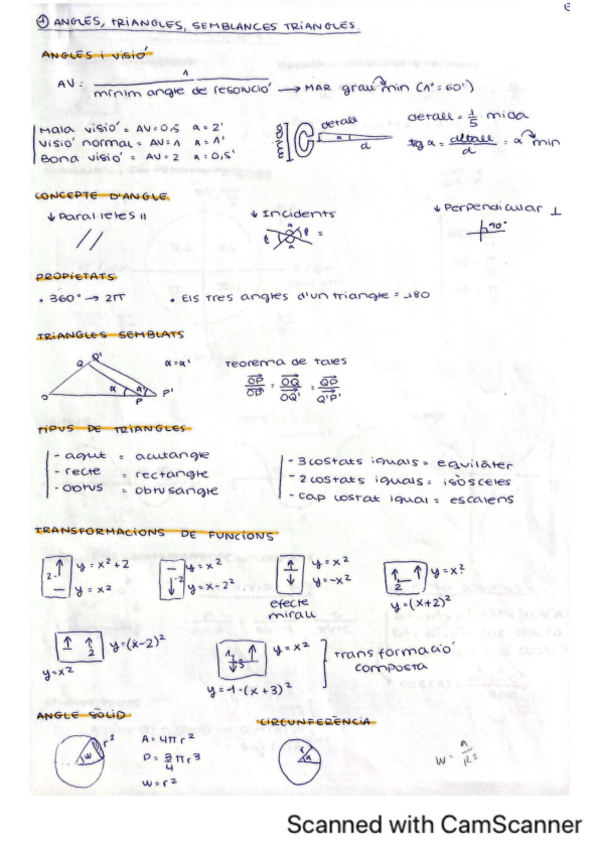 ① ANGLES, TRIANGLES, SEMBLANCES TRIANGLES.
ANGLES I VISIÓ
AV: 1 / mínim angle de resolució → MAR grau min (1° = 60')
Mala visió = AV=0,5 a = 2'
Visió normal = AV=1 a = 1'
Bona visió = AV=2 a = 0,5'
mida
detall
d
detall = 1/5 mida
tg α = detall/d = α min
CONCEPTE D'ANGLE
↓ Paral·leles ||
↓ Incidents
↓ Perpendicular ⊥
90°
PROPIETATS
• 360° → 2π
• Els tres angles d'un triangle = 180
TRIANGLES SEMBLATS
O Q Q' α α' P P'
α = α'
Teorema de tales
OP/OP' = OQ/OQ' = QP/Q'P'
TIPUS DE TRIANGLES
- agut = acutangle
- recte = rectangle
- obtus = obtusangle
- 3 costats iguals = equilàter
- 2 costats iguals = isòsceles
- cap costat igual = escalens
TRANSFORMACIONS DE FUNCIONS
2 y = x² + 2
y = x²
y = x²
2 y = x - 2²
y = x²
y = -x²
efecte
mirall
2 y = x²
y = (x+2)²
2 y = (x-2)²
y = x²
3 y = x²
y = -1·(x+3)²
transformació
composta
ANGLE SÒLID
r²
w
A = 4πr²
w = r²
CIRCUNFERÈNCIA
r
a
Scanned with CamScanner